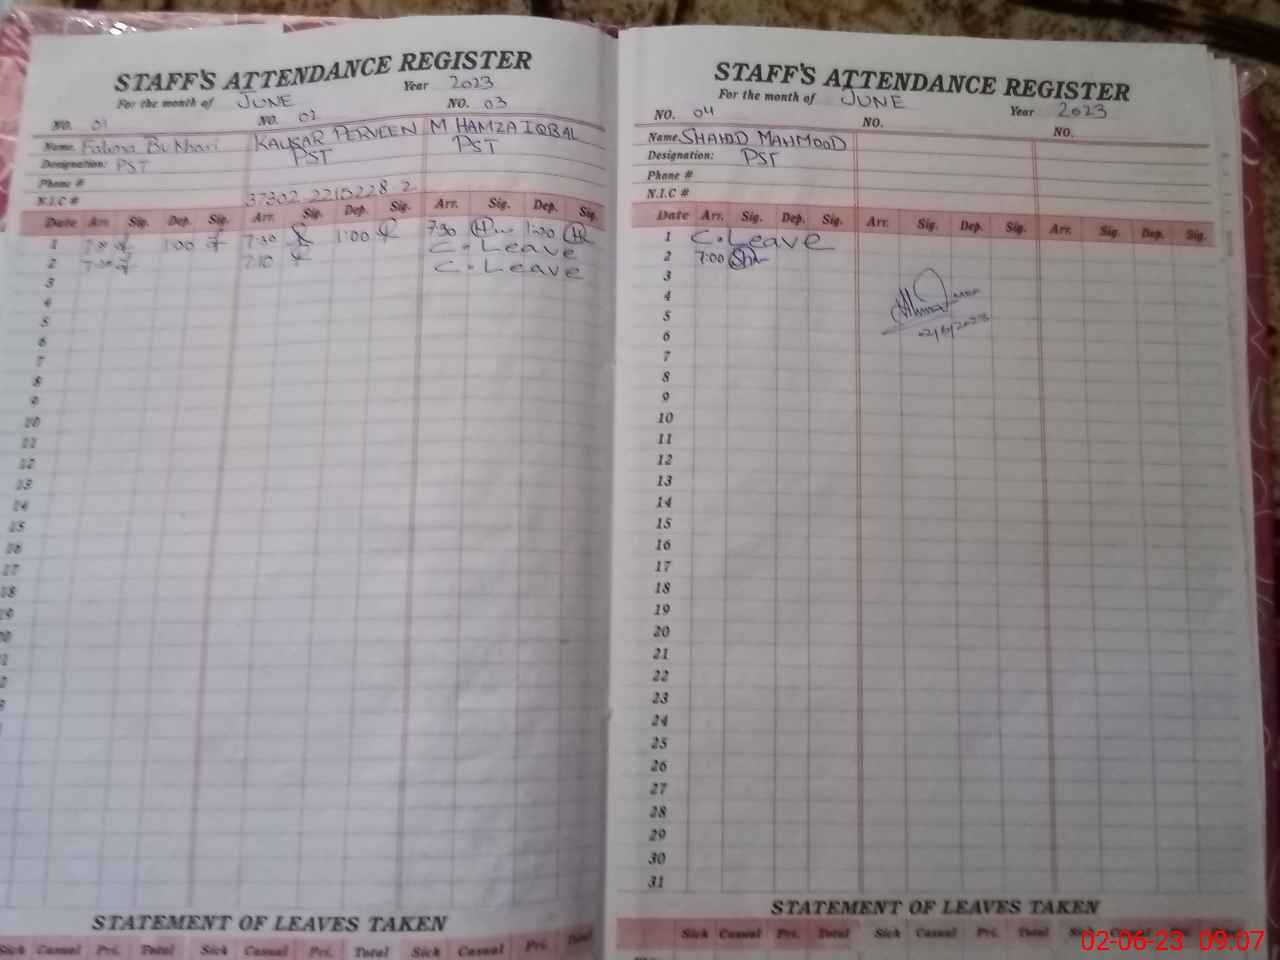 STAFF'S ATTENDANCE REGISTER
For the month of JUNE Year 2023
NO. 01 NO. 02 NO. 03
Name. Fatima Bukhari KAUSAR PERVEEN M HAMZA IQBAL
Designation: PST PST PST
Phone #
N.I.C # 37302 2210228 2
Date Arr. Sig. Dep. Sig. Arr. Sig. Dep. Sig. Arr. Sig. Dep. Sig.
1 7:30 1:00 7:30 1:00 7:30 1:00
C. Leave
2 7:30 7:10 C. Leave
3
4
5
6
7
8
9
10
11
12
13
14
15
16
17
18
19
STATEMENT OF LEAVES TAKEN
Sick Casual Pri. Total Sick Casual Pri. Total Sick Casual Pri. Total
STAFF'S ATTENDANCE REGISTER
For the month of JUNE Year 2023
NO. 04 NO. NO.
Name. SHAHID MAHMOOD
Designation: PST
Phone #
N.I.C #
Date Arr. Sig. Dep. Sig. Arr. Sig. Dep. Sig. Arr. Sig. Dep. Sig.
1 C. Leave
2 7:00
3
4
5
02/6/2023
6
7
8
9
10
11
12
13
14
15
16
17
18
19
20
21
22
23
24
25
26
27
28
29
30
31
STATEMENT OF LEAVES TAKEN
Sick Casual Pri. Total Sick Casual Pri. Total Sick Casual Pri. Total
02-06-23 09:07